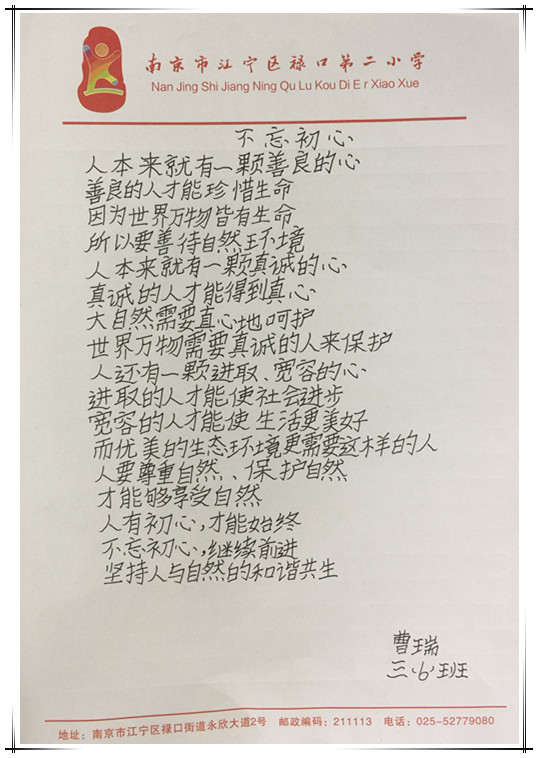 南京市江宁区禄口第二小学
Nan Jing Shi Jiang Ning Qu Lu Kou Di E r Xiao Xue
不忘初心
人本来就有一颗善良的心
善良的人才能珍惜生命
因为世界万物皆有生命
所以要善待自然环境
人本来就有一颗真诚的心
真诚的人才能得到真心
大自然需要真心地呵护
世界万物需要真诚的人来保护
人还有一颗进取、宽容的心
进取的人才能使社会进步
宽容的人才能使生活更美好
而优美的生态环境更需要这样的人
人要尊重自然、保护自然
才能够享受自然
人有初心,才能始终
不忘初心,继续前进
坚持人与自然的和谐共生
曹瑞
三、(6)班
地址:南京市江宁区禄口街道永欣大道2号 邮政编码:211113 电话:025-52779080